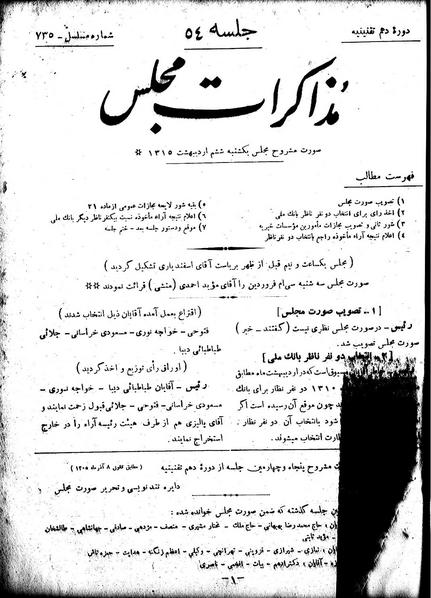 دورهٔ دهم تقنینیه
جلسه ٥٤
شماره مسلسل - ۷۳٥
مذاکرات مجلس
صورت مشروح مجلس یکشنبه ششم اردیبهشت ۱۳۱٥ *
فهرست مطالب
۱) تصویب صورت مجلس
۲) اخذ رأی برای انتخاب دو نفر ناظر بانک ملی
۳) شور ثانی و تصویب مجازات مأمورین مؤسسات خیریه
٤) اعلام نتیجه آراء مأخوذه راجع بانتخاب دو نفر ناظر
٥) بقیه شور لایحه مجازات عمومی از ماده ۲۱
٦) اعلام نتیجه آراء مأخوذه نسبت بیکنفر ناظر دیگر بانک ملی
۷) موقع و دستور جلسه بعد - ختم جلسه
( مجلس یکساعت و نیم قبل از ظهر بریاست آقای اسفندیاری تشکیل گردید )
صورت مجلس سه شنبه سی‌ام فروردین را آقای مؤید احمدی (منشی) قرائت نمودند **
[ ۱ - تصویب صورت مجلس ]
رئیس - در صورت مجلس نظری نیست (گفتند - خیر)
صورت مجلس تصویب شد.
[ ۲ - انتخاب دو نفر ناظر بانک ملی ]
مسبوق است که در اردیبهشت ماه مطابق
۱۳۱۰ دو نفر ناظر برای بانک
چون موقع آن رسیده است اگر
شود بانتخاب آن دو نفر نظار
نظارت انتخاب میشوند.
( اقتراع بعمل آمده آقایان ذیل انتخاب شدند )
فتوحی - خواجه نوری - مسعودی خراسانی - جلائی
طباطبائی دیبا .
( اوراق رأی توزیع و اخذ گردید )
رئیس - آقایان طباطبائی دیبا - خواجه نوری -
مسعودی خراسانی - فتوحی - جلائی قبول زحمت نمایند و
آقای پالیزی هم از طرف هیئت رئیسه آراء را در خارج
استخراج نمایند.
مشروح پنجاه و چهارمین جلسه از دورهٔ دهم تقنینیه
(مطابق قانون ۸ آذر ماه ۱۳۰٥)
دایره تند نویسی و تحریر صورت مجلس
جلسه گذشته که ضمن صورت مجلس خوانده شده :
حاج محمد رضا بهبهانی - حاج ملک - مختار مشیری - منصف - مژدهی - صادقی - جهانشاهی - طالشخان
مؤید ثابتی
نیازی - شیرازی - قزوینی - تهرانچی - وکیلی - اعظم زنگنه - هدایت - حمزه تاش
آقایان : دکتر ادهم - بیات - ناصری
-۱-